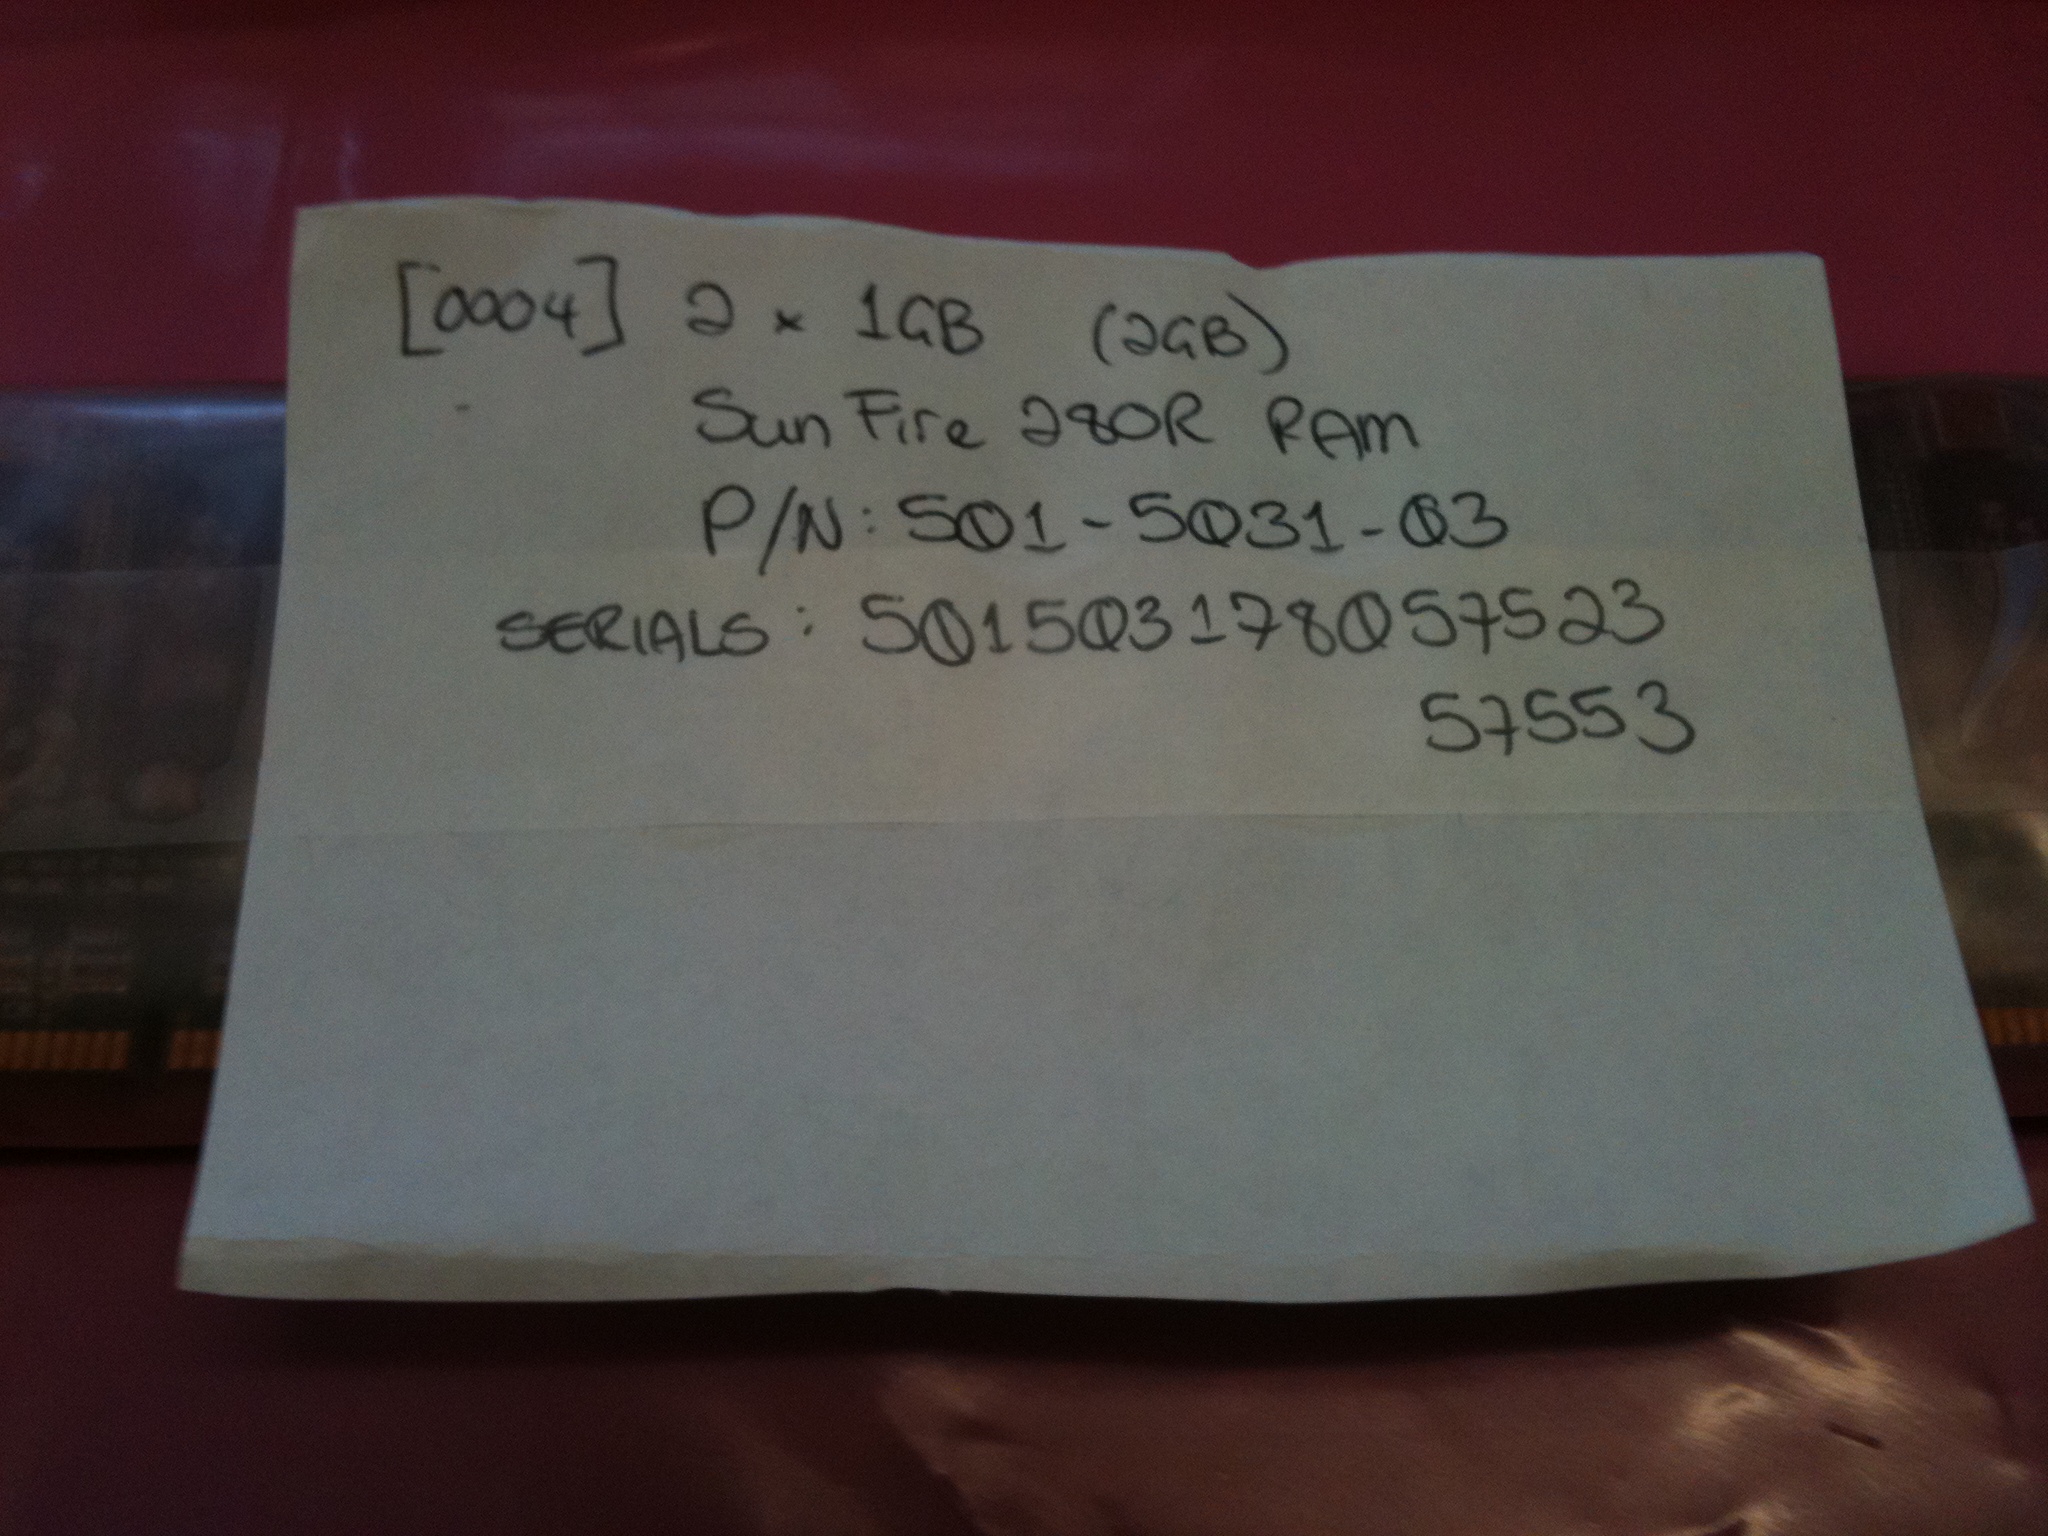 [0004] 2 × 1GB (2GB)
Sun Fire 280R RAM
P/N: 501-5031-03
SERIALS: 501503178057523
57553